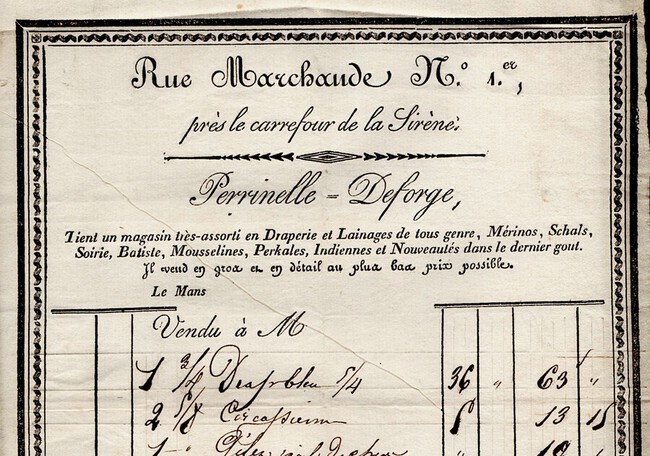 Rue Marchande N.º 1.er,
près le carrefour de la Sirène.
Perrinelle = Deforge,
Tient un magasin très-assorti en Draperie et Lainages de tous genre, Mérinos, Schals,
Soirie, Batiste, Mousselines, Perkales, Indiennes et Nouveautés dans le dernier gout.
Il vend en gros et en détail au plus bas prix possible.
Le Mans
Vendu à M
1 3/4 Drap bleu 5/4 36 " 63 "
2 5/8 Circassienne 13 15